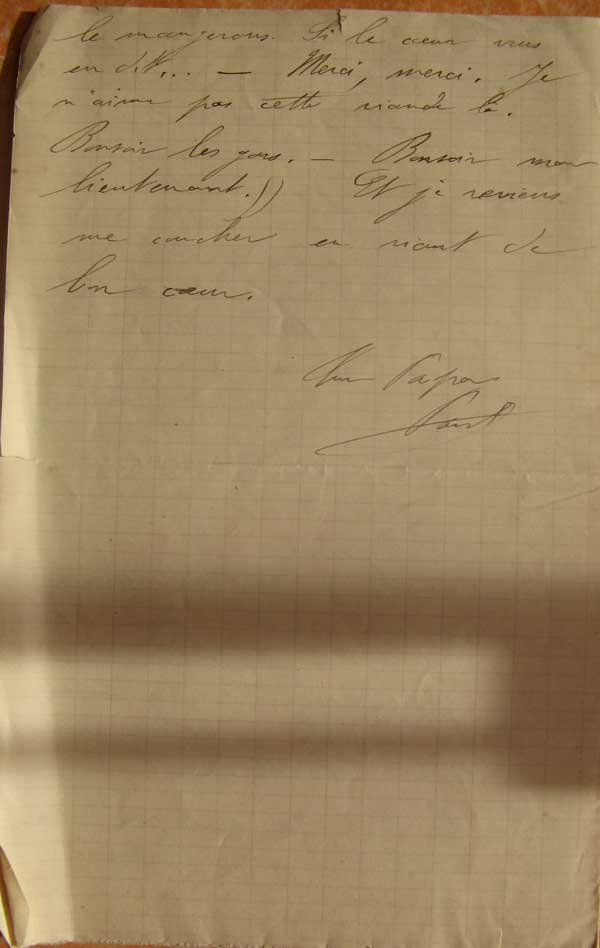 le mangerons. Si le cœur vous
en dit... — Merci, merci. Je
n'aime pas cette viande là.
Bonsoir les gars. — Bonsoir mon
lieutenant.)) Et je reviens
me coucher en riant de
bon cœur.
Paul